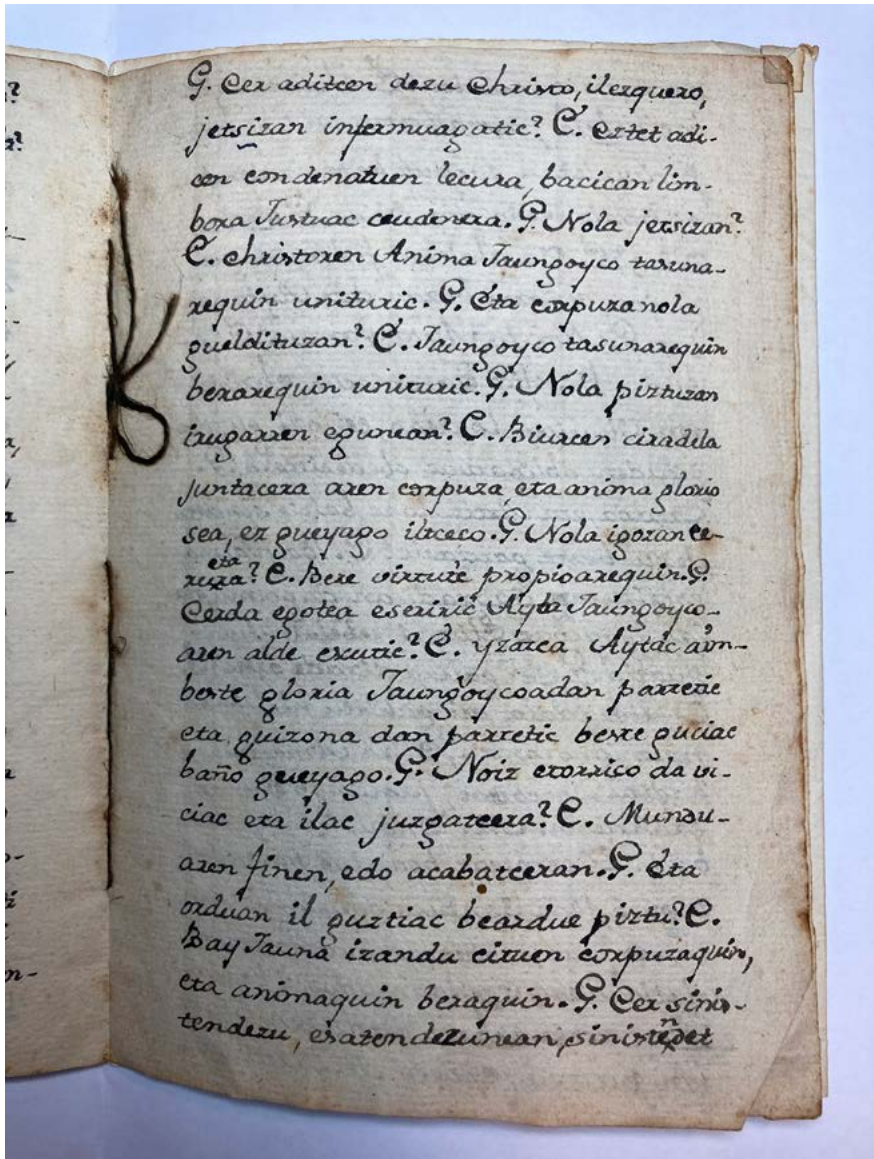 G. Cer aditcen dezu Christo, ilezquero,
jetsizan infernuagatic? E. Eztet adi-
cen condenatuen lecura, bacican lim-
bora Justuac ceudenera. G. Nola jetsizan?
E. christoren Anima Jaungoyco tasuna-
requin unituric. G. Eta corpuza nola
gueldituzan? E. Jaungoyco tasunarequin
berarequin unituric. G. Nola piztuzan
irugarren egunean? E. Biurcen ciradela
juntacera aren corpuza, eta anima glorio
sea, ez gueyago iltceco. G. Nola igozan ce-
rueta
ra? E. Bere virtute propioarequin. G.
Cerda egotea eseriric Ayta Jaungoyco-
aren alde escutic? E. yzatea Aytac aim-
beste gloria Jaungoycoadan partetic
eta guizona dan partetic beste guciac
baño gueyago. G. Noiz etorrico da vi-
ciac eta ilac juzgatcera? E. Mundu-
aren finen, edo acabatceran. G. Eta
orduan il guztiac beardue piztu? E.
Bay Jauna izandu cituen corpuzaquin,
eta animaquin beraquin. G. Cer sinis-
tendezu, esatendezunean, sinistendet